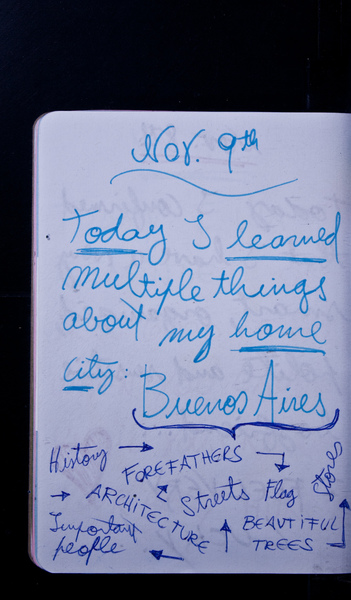 Nov. 9th
Today I learned
multiple things
about my home
city:
Buenos Aires
History → FOREFATHERS
→ ARCHITECTURE Streets Flag Stores
Important
people
BEAUTIFUL
TREES